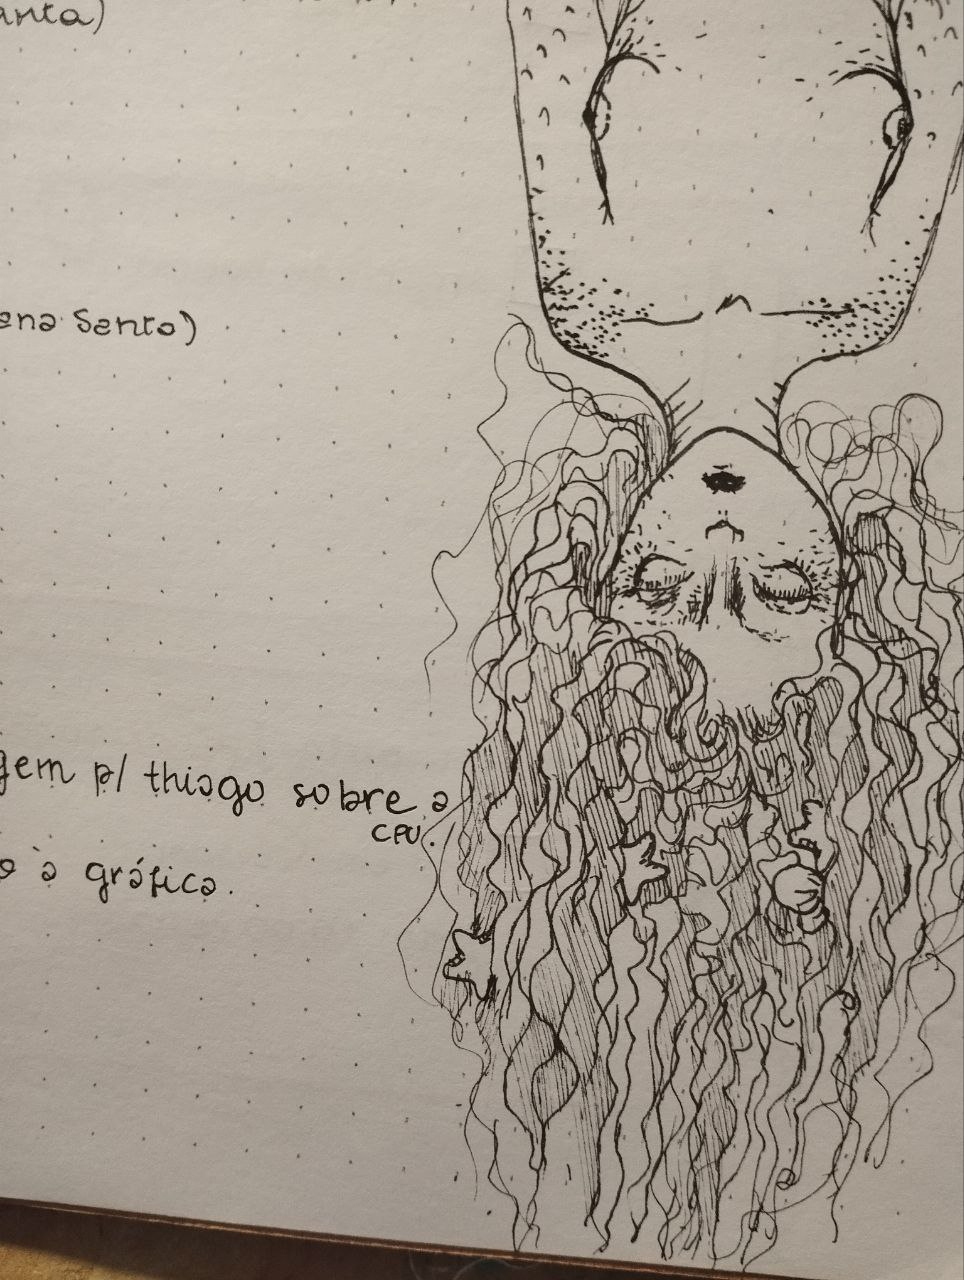 anta)
ena Santo)
gem p/ thiago sobre a
CPU.
o à gráfica.